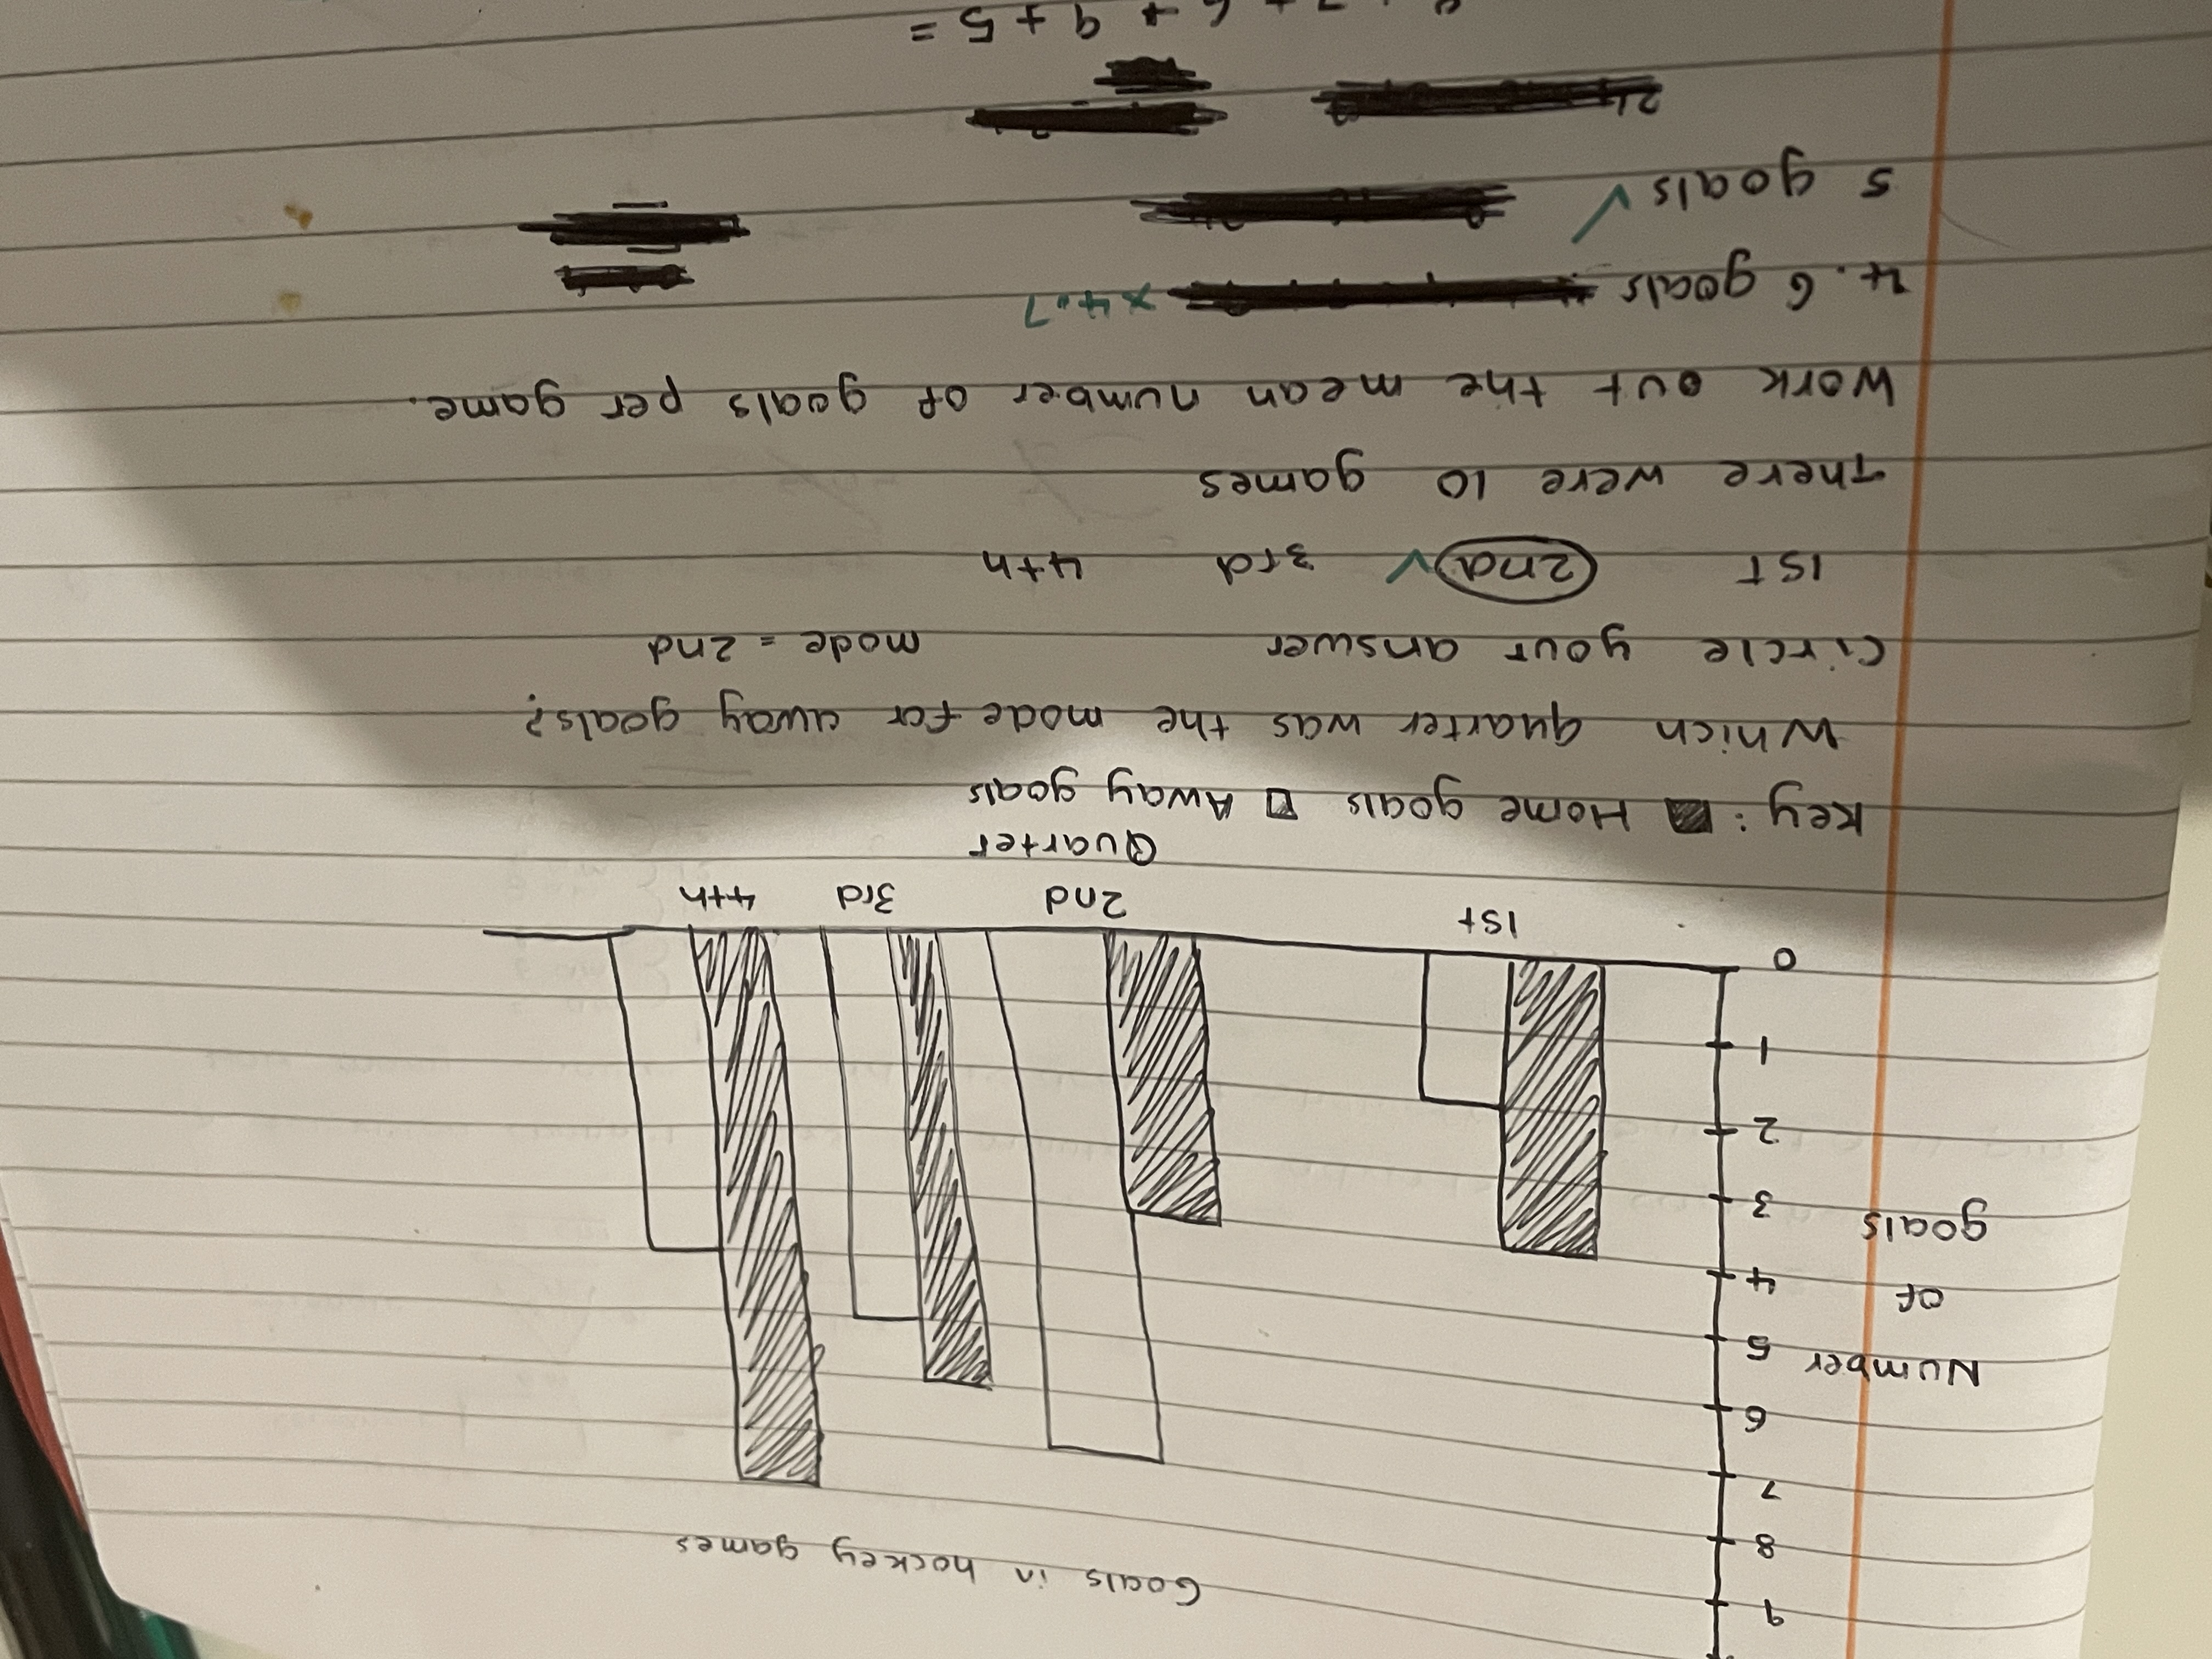 Goals in hockey games
9
8
7
6
Number 5
of 4
goals 3
2
1
0
1st 2nd 3rd 4th
Quarter
Key: Home goals Away goals
Which quarter was the mode for away goals?
Circle your answer mode = 2nd
1st 2nd 3rd 4th
There were 10 games
Work out the mean number of goals per game.
4.6 goals x4.7
5 goals
+ 9 + 5 =